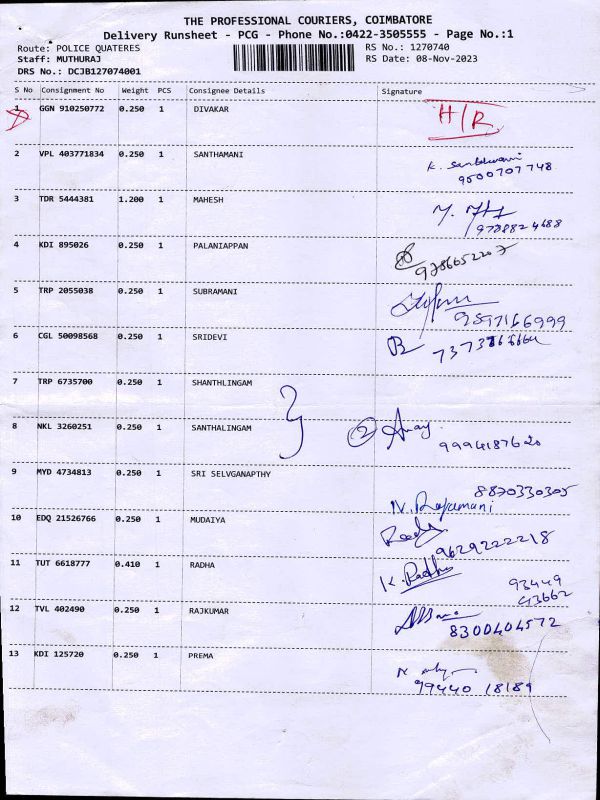 THE PROFESSIONAL COURIERS, COIMBATORE
Delivery Runsheet - PCG - Phone No.:0422-3505555 - Page No.:1
Route: POLICE QUATERES RS No.: 1270740
Staff: MUTHURAJ RS Date: 08-Nov-2023
DRS No.: DCJB127074001
S No Consignment No Weight PCS Consignee Details Signature
1 GGN 910250772 0.250 1 DIVAKAR H/R
2 VPL 403771834 0.250 1 SANTHAMANI K.
9500707748
3 TDR 5444381 1.200 1 MAHESH
9788824688
4 KDI 895026 0.250 1 PALANIAPPAN
9786652207
5 TRP 2055038 0.250 1 SUBRAMANI
9597166999
6 CGL 50098568 0.250 1 SRIDEVI
7 TRP 6735700 0.250 1 SHANTHLINGAM
8 NKL 3260251 0.250 1 SANTHALINGAM 2
9994187620
9 MYD 4734813 0.250 1 SRI SELVGANAPTHY
8870330305
N. Rajamani
10 EDQ 21526766 0.250 1 MUDAIYA
9629222218
11 TUT 6618777 0.410 1 RADHA K. Radha
93449
43662
12 TVL 402490 0.250 1 RAJKUMAR
8300404572
13 KDI 125720 0.250 1 PREMA
99440 18189